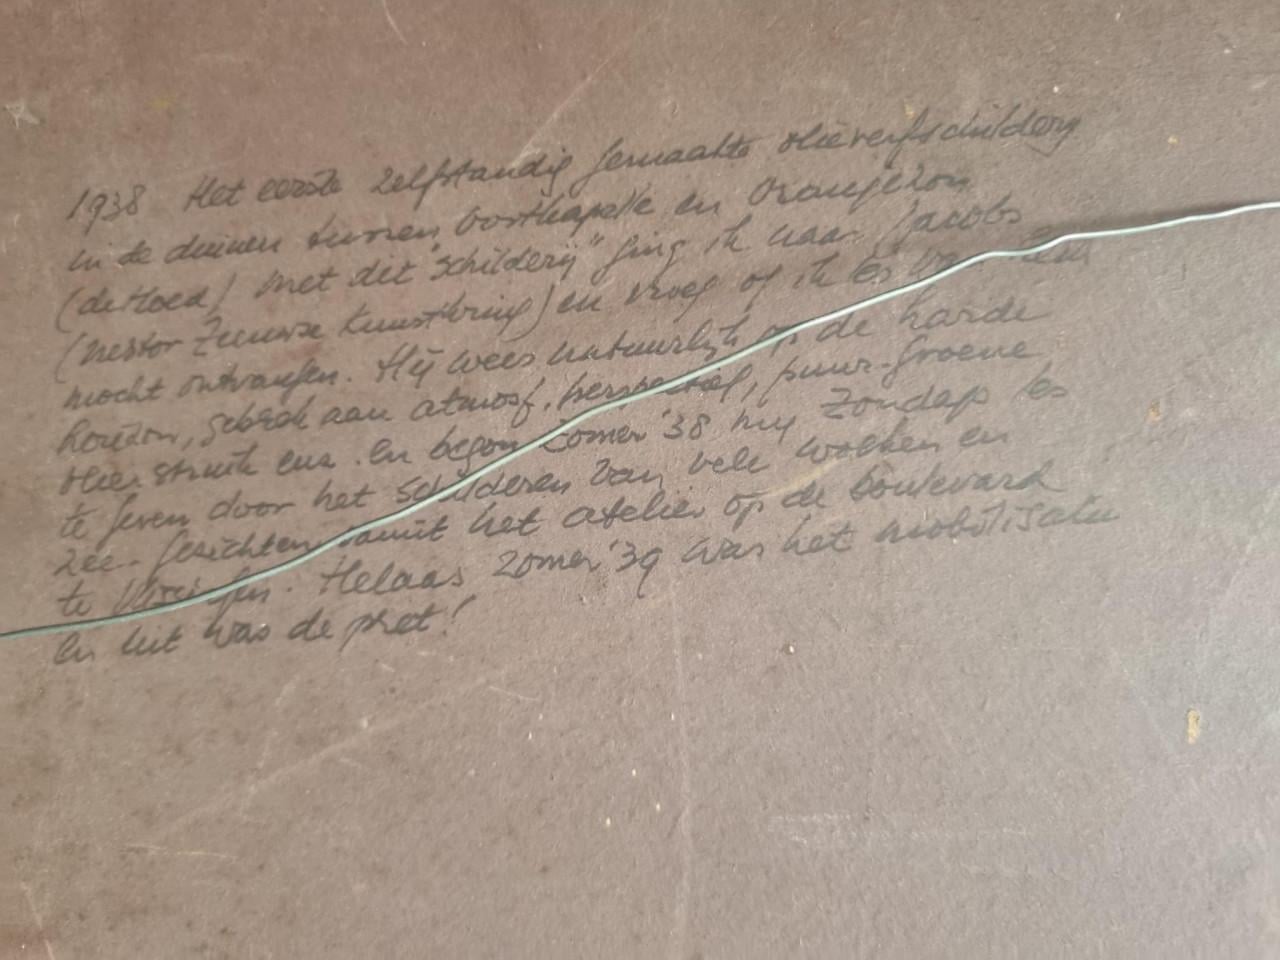 1938 Het eerste zelfstandig gemaakte olieverfschildery
in de duinen tussen Oostkapelle en Oranjezon
(de Hoed) Met dit "schilderij" ging ik naar Jacobs
(nestor Zeeuwse Kunstkring) en vroeg of ik les van hem
mocht ontvangen. Hij wees natuurlijk op de harde
horizon, gebrek aan atmosf. perspectief, puur-groene
struik enz. en begon zomer '38 my Zondags les
te geven door het schilderen van vele wolken en
zee-gezichten vanuit het atelier op de boulevard
te Vlissingen. Helaas zomer '39 was het mobilisatie
en uit was de pret!